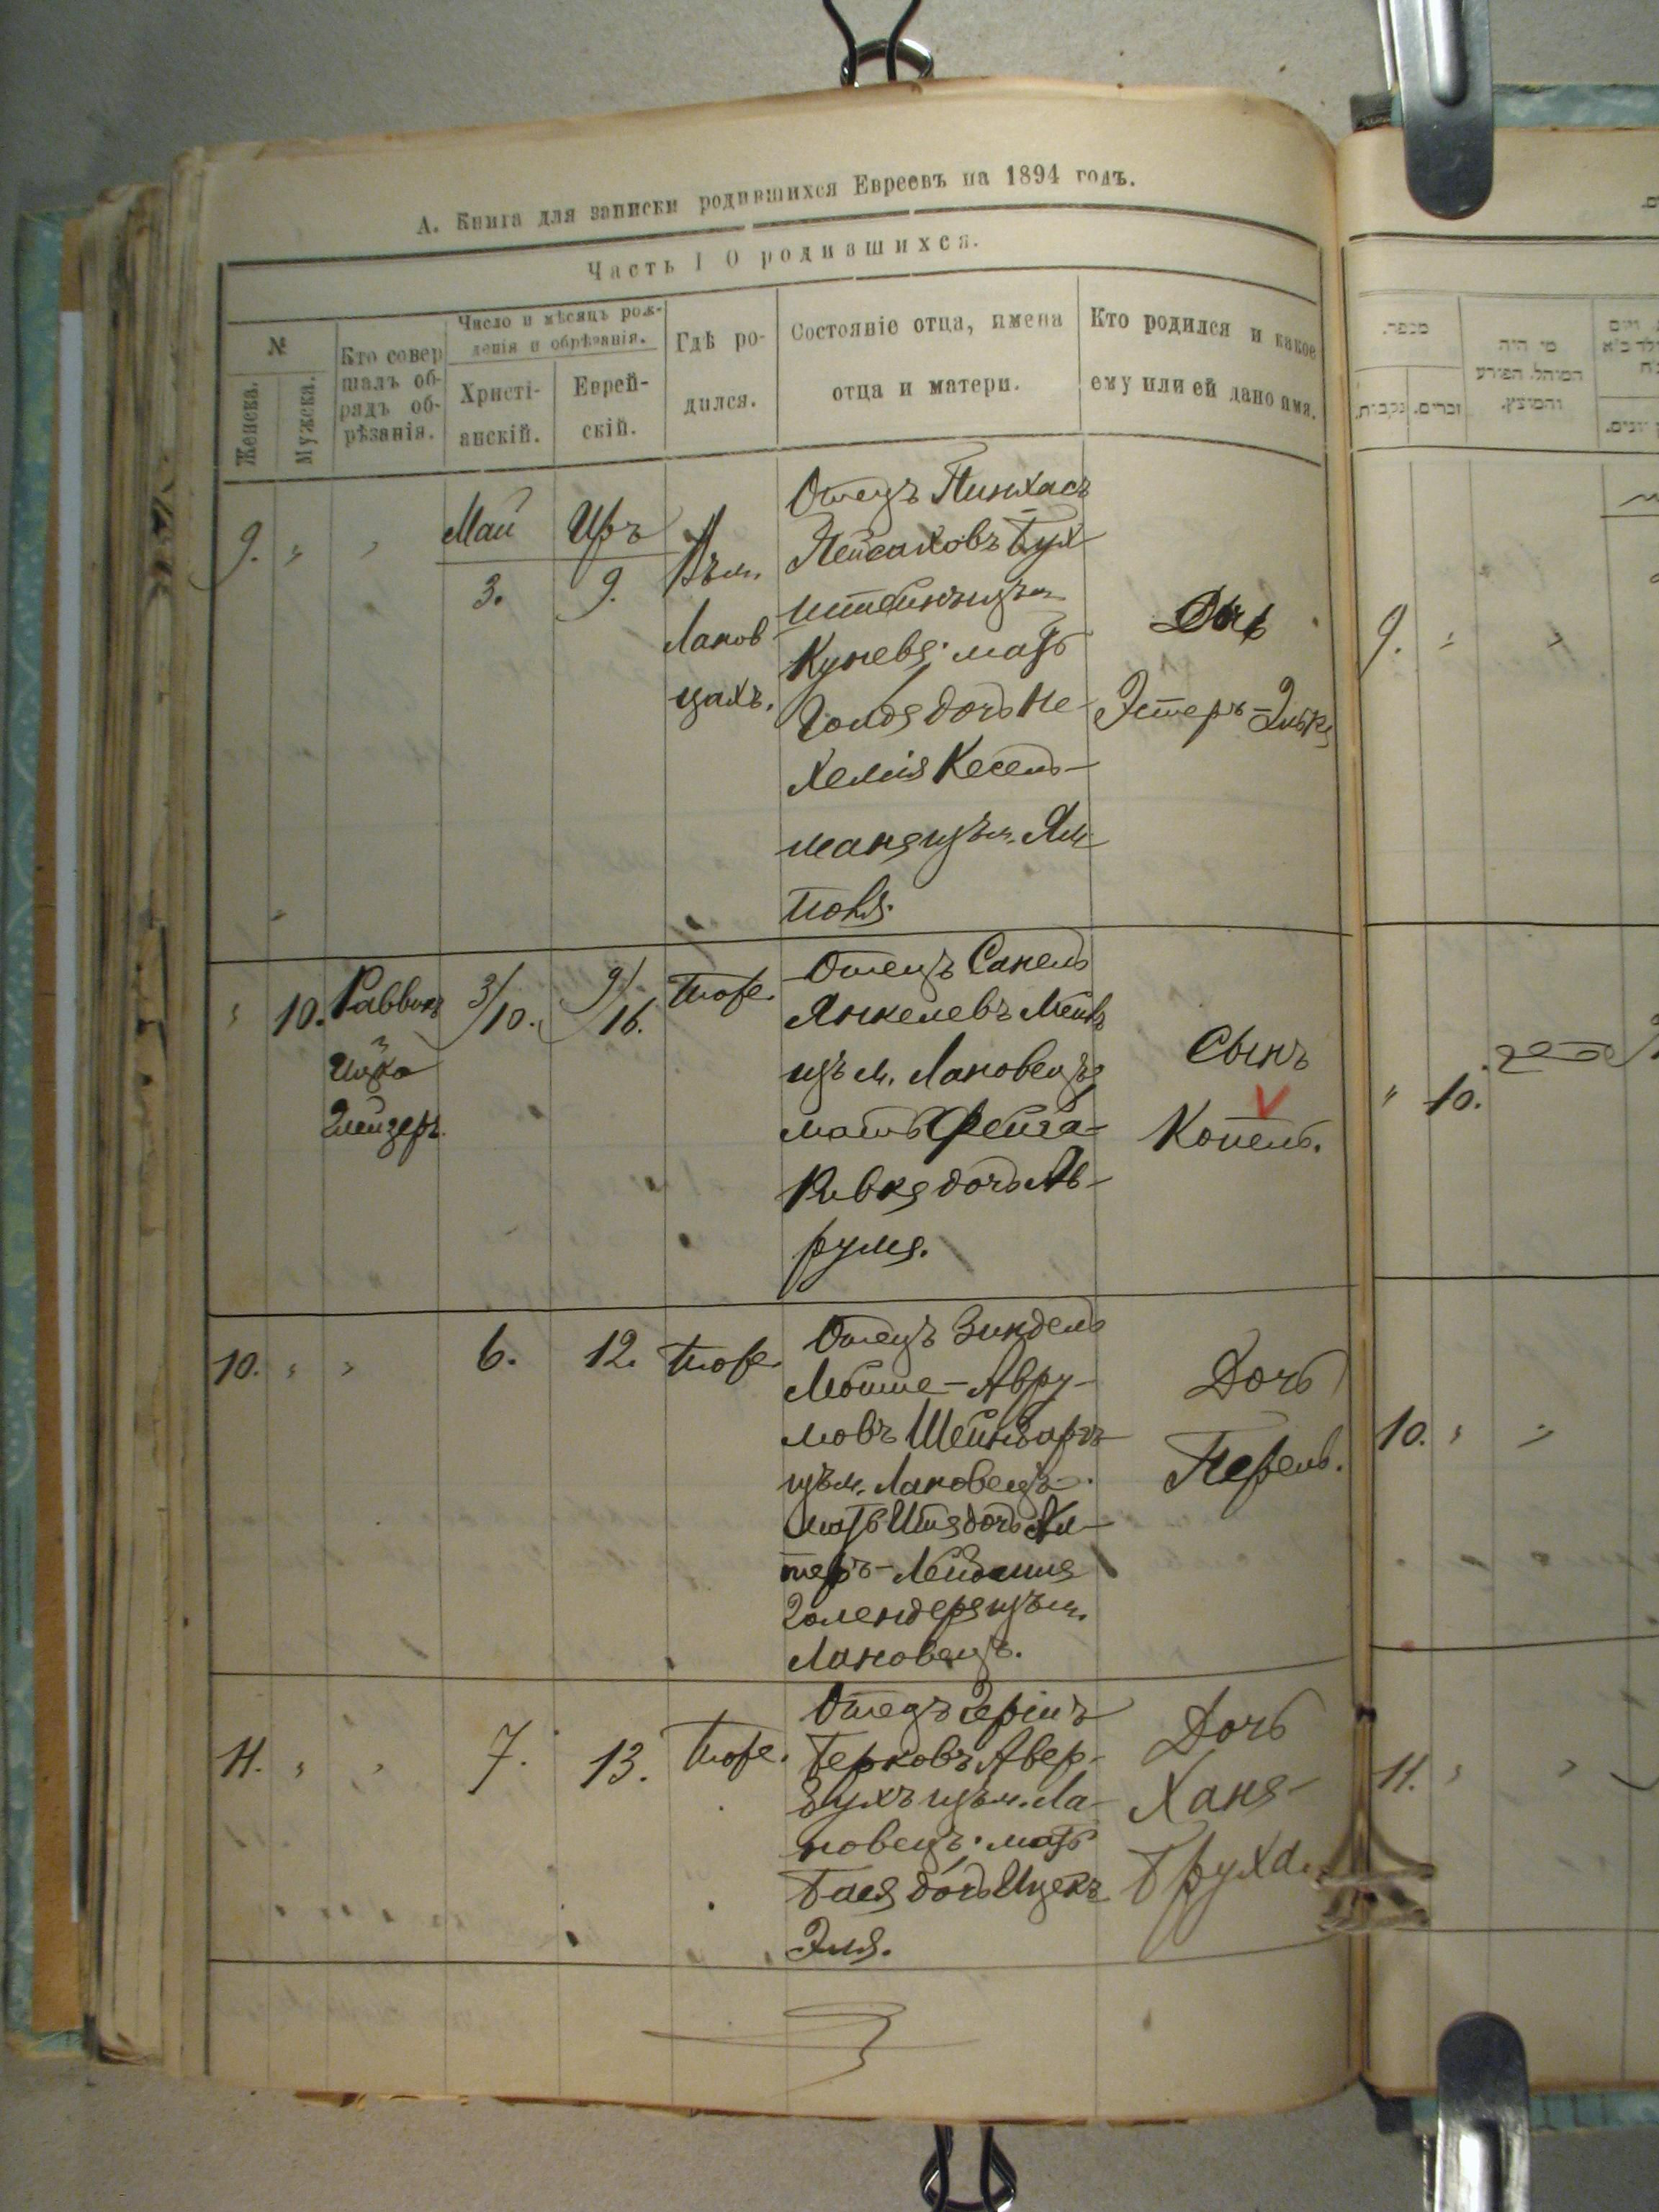 А. Книга для записки родившихся Евреевъ на 1894 годъ.
Часть I О родившихся.
№
Женска.
Мужска.
Кто совер
шалъ об-
рядъ об-
рѣзанія.
Число и мѣсяцъ рож-
денія и обрѣзанія.
Христі-
анскій.
Еврей-
скій.
Гдѣ ро-
дился.
Состояніе отца, имена
отца и матери.
Кто родился и какое
ему или ей дано имя.
9. " "
Май
3.
Иръ
9.
Въ м.
Ланов
цахъ.
Отецъ Пинхасъ
Пейсаховъ Бух
штейнъ изъ м.
Кунева; мать
Голда дочь Не-
хеміи Кесель-
мана изъ м. Ям
поля.
Дочь
Эстеръ-Элька
" 10.
Раввинъ
Ицко
Глейзеръ.
3/10.
9/16.
Тоже.
Отецъ Санель
Янкелевъ
изъ м. Лановецъ;
мать Фейга-
Ривка дочь Ав-
рума.
Сынъ
Копель.
10. " "
6.
12.
Тоже.
Отецъ Зиндель
Мойше-Авру-
мовъ
изъ м. Лановецъ.
мать Ита дочь Ал-
теръ-
Голендера изъ м.
Лановецъ.
Дочь
Перель.
11. " "
7.
13.
Тоже.
Отецъ Гершъ
Берковъ Авер-
бухъ изъ м. Ла-
новецъ; мать
Бася дочь Ицекъ
Эля.
Дочь
Хана-
Бруха.
מספר.
זכרים.
נקבות.
מי היה
המוהל, הפורע
והמוצץ.
9. " "
" 10.
10. " "
11. " "